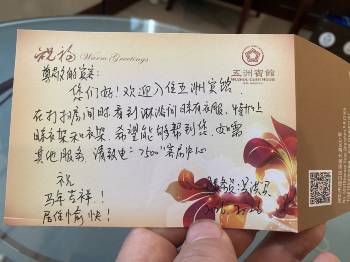 祝福
Warm Greetings
五洲宾馆
WUZHOU GUEST HOUSE
尊敬的宾客:
您们好!欢迎入住五洲宾馆.
在打扫房间时看到淋浴间晒有衣服,特加上
晒衣架和衣架,希望能够帮到您,如需
其他服务,请致电"2500"客房中心
祝
马年吉祥!
居住愉快!
服务员: